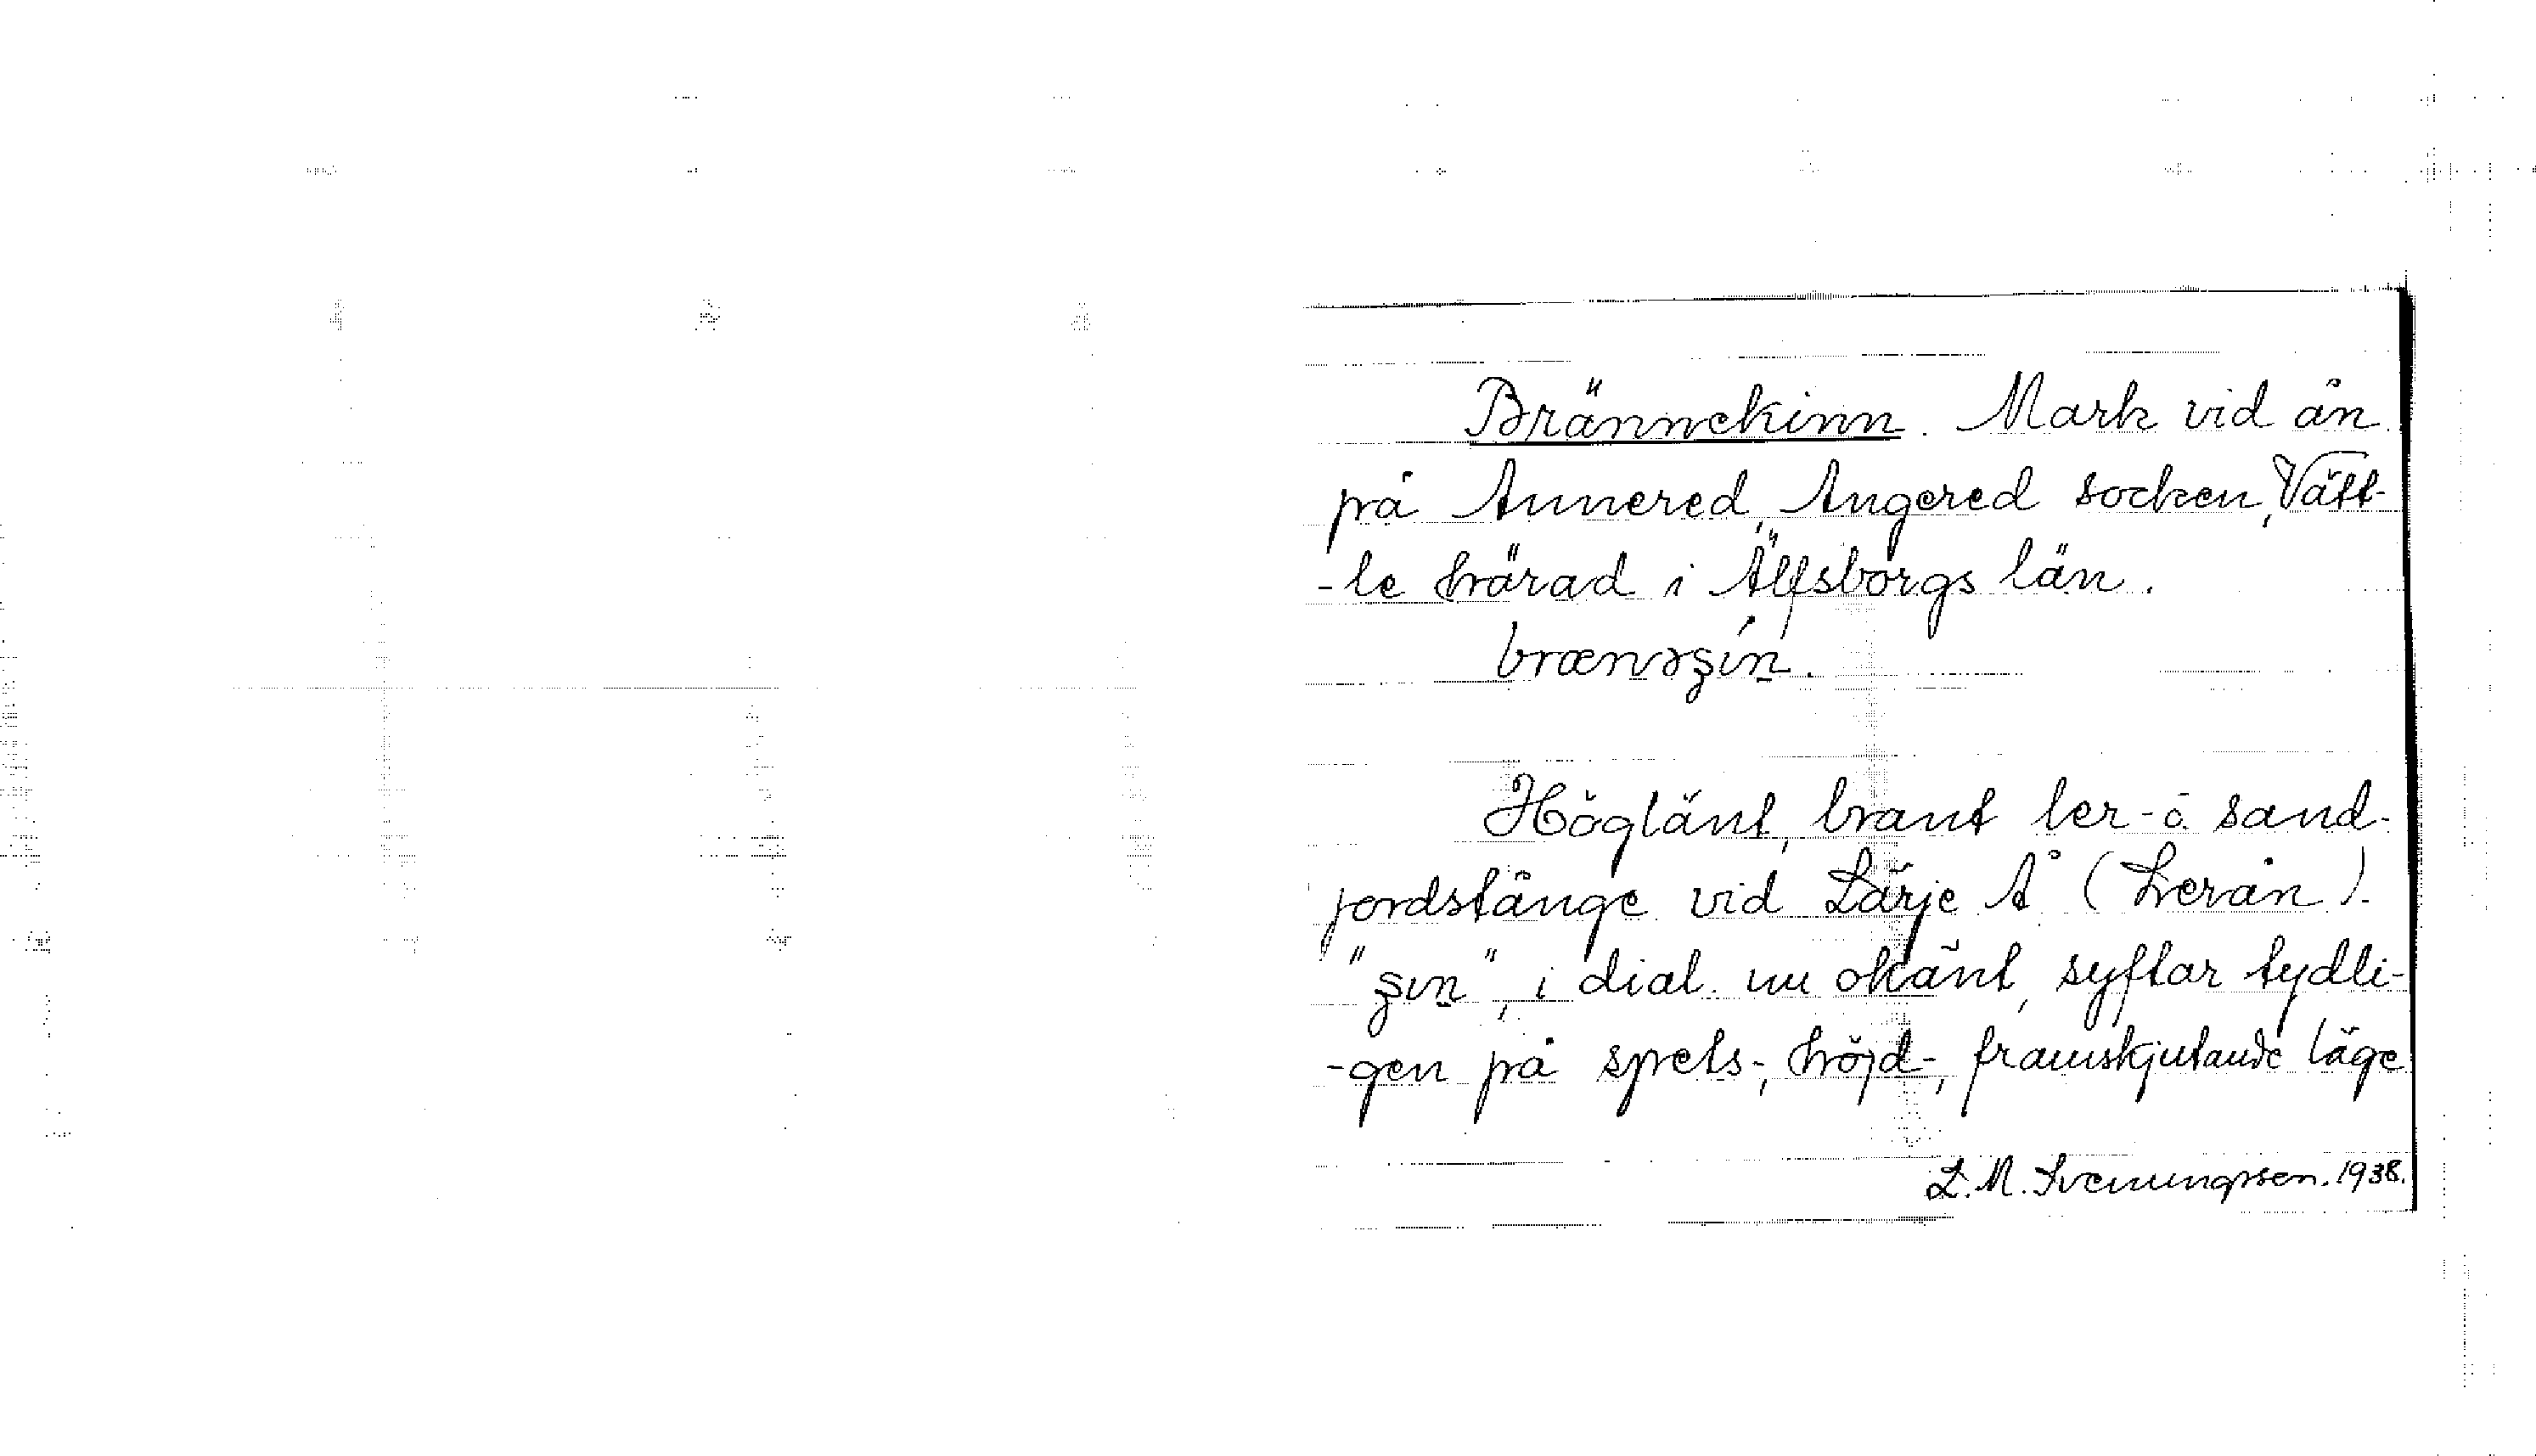 Brännekinn. Mark vid ån
på Annered, Angered socken, Vätt-
-le härad i Älfsborgs län.
Höglänt, brant ler- o. sand-
jordstånge vid Lärje Å (Lerån).
i dial. nu okänt, syftar tydli-
-gen på spets-, höjd-, framskjutande läge
L. M. Svenungsson. 1938.